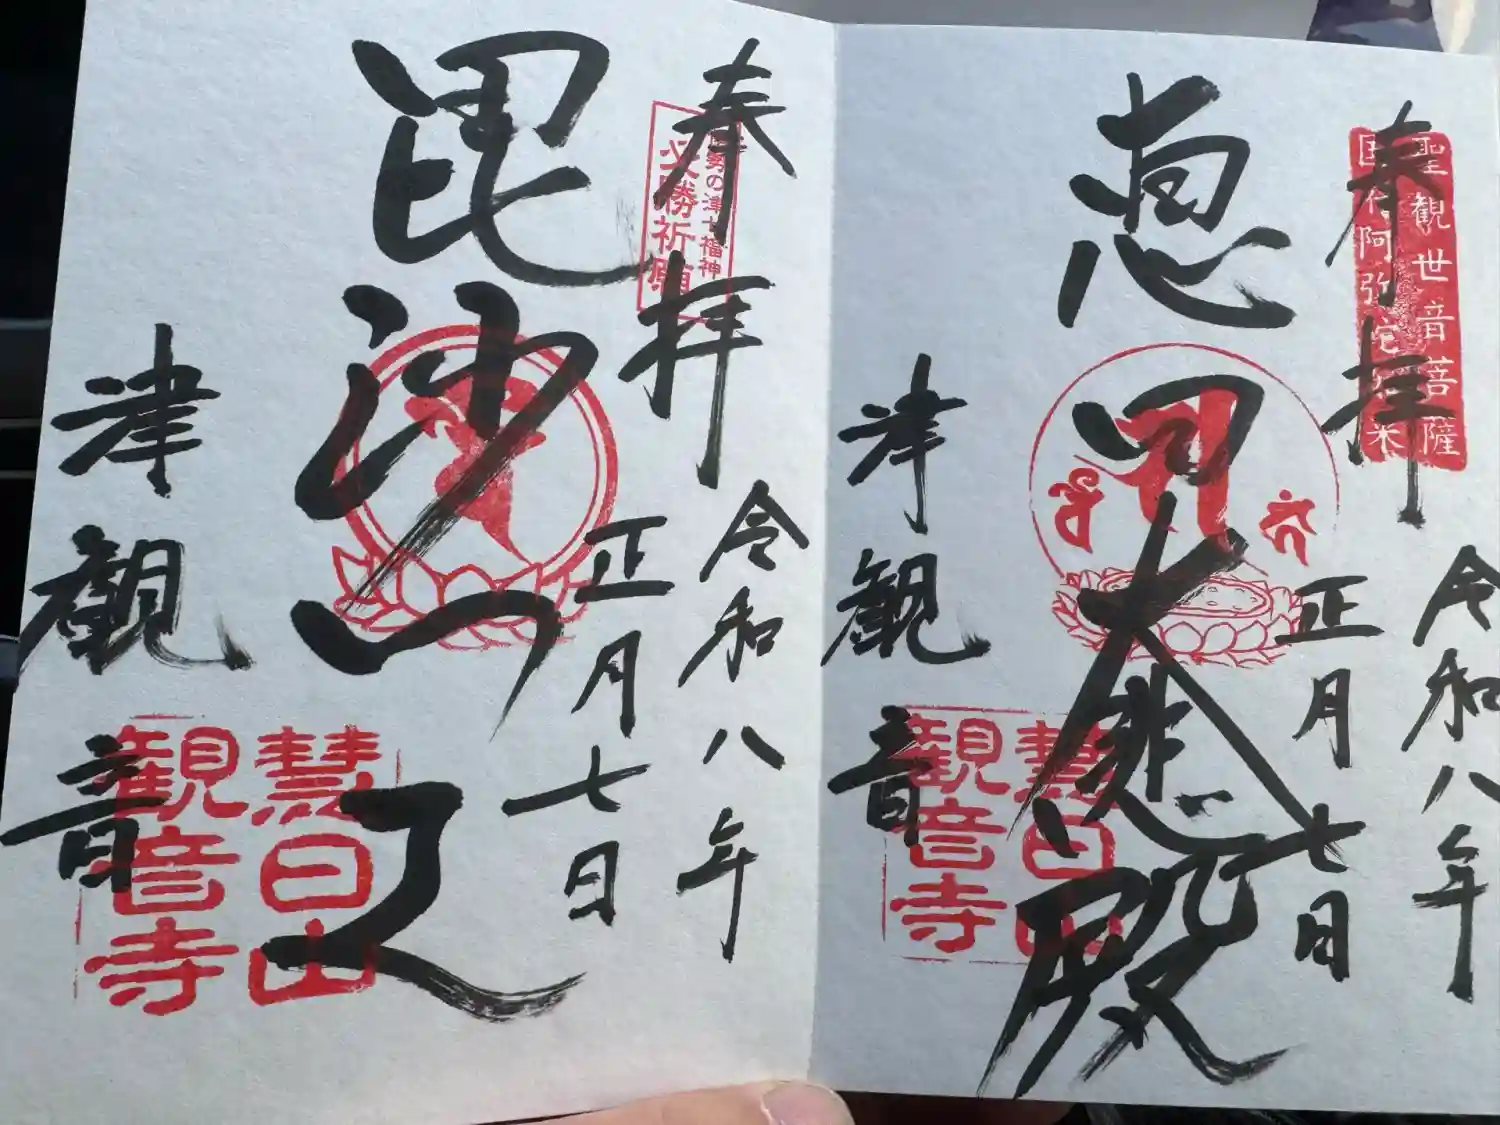 奉拝
聖観世音菩薩
国府阿弥陀如来
令和八年
正月七日
恵日大悲殿
慧日山
観音寺
津観音
奉拝
伊勢の津七福神
必勝祈願
令和八年
正月七日
毘沙門天
慧日山
観音寺
津観音